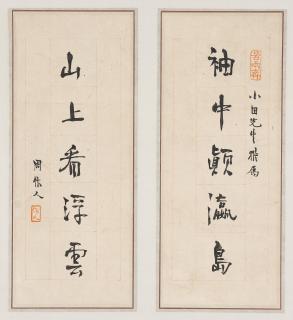 袖中顛瀛島
小田先生雅屬
山上看浮雲
周作人